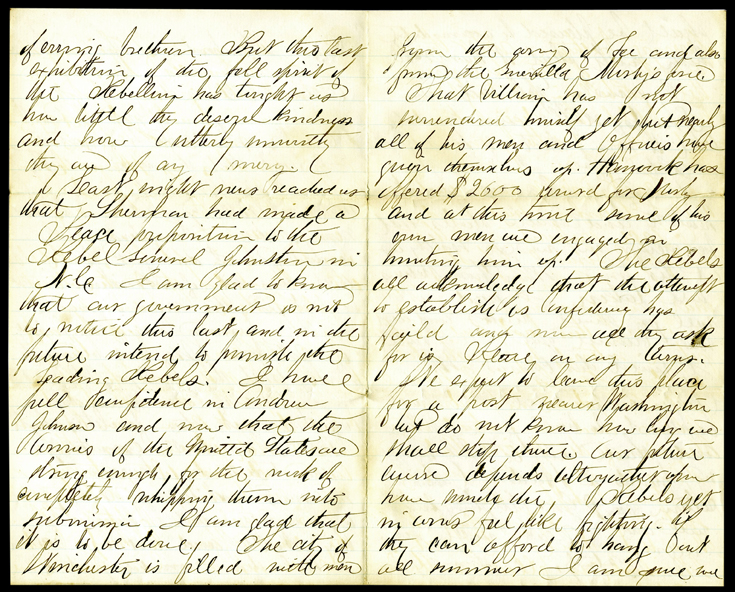 of erring brethren. But this last
exhibition of the fell spirit of
the Rebellion has taught us
how little they deserve kindness
and how utterly unworthy
they are of any mercy.
Last night news reached us
that Sherman had made a
Peace proposition to the
Rebel General Johnston in
N.C. I am glad to know
that our government is not
to notice this last, and in the
future intend to punish the
leading Rebels. I have
full confidence in Andrew
Johnson and now that the
Armies of the United States are
strong enough for the work of
completely whipping them into
submission I am glad that
it is to be done. The city of
Winchester is filled with men
from the army of Lee and also
from the Guerrilla Mosby's force
That Villain has not
surrendered himself yet but nearly
all of his men and Officers have
given themselves up. Hancock has
offered $2000 reward for Mosby
and at this time some of his
own men are engaged in
hunting him up. The Rebels
all acknowledge that the attempt
to establish a Confederacy has
faild and now all they ask
for is Peace on any terms.
We expect to leave this place
for a post nearer Washington
but do not know how long we
shall stop there. Our future
course depends altogether upon
how much the Rebels yet
in arms feel like fighting. If
they can afford to hang out
all summer I am sure we